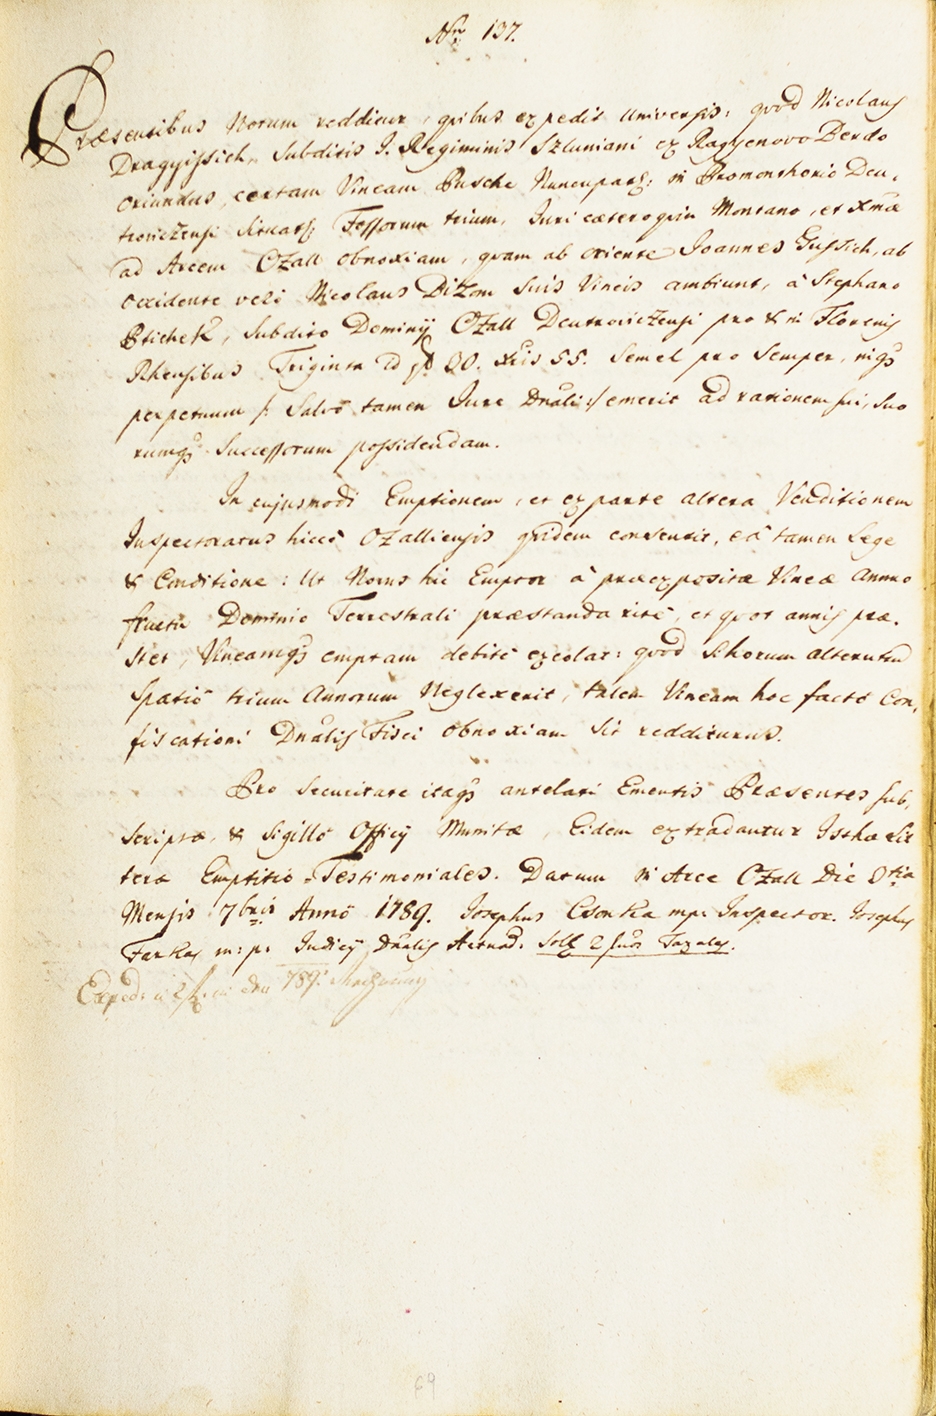 Nro 137.
Præsentibus Notum redditur, quibus expedit universis: quod Nicolaus
Dragyissich, Subditis I. Regiminis Szluniani ex Ragyenovo Berdo
oriundus, certam Vineam Pusche Nuncupatã: in Promonthorio Deu,
trovichensi Sitnatã Fossorum trium, Juri cæteroquin Montano, et Xmæ
ad Arcem Ozall obnoxiam, quam ab oriente Joannes Gussich, ab
occidente verò Nicolaus Dizom Suis Vineis ambiunt, à Stephano
Ptichek, Subdito Dominÿ Ozall Deutrovichensi pro & in Florenis
Rhensibus Triginta id est 30. xris 55. Semel pro Semper, inqȝ
perpetuum /: Salvô tamen Jure Dnali :/ emerit ad rationem sui, Suo
rumqȝ Successorum possidendam.
In cujusmodi Emptionem, et ex parte altera Venditionem
Inspectoratus hiccè Ozalliensis quidem consensit, eâ tamen Lege
& Conditione: Ut Novus hic Emptor à præexpositæ Vineæ annuo
fructu Dominio Terrestrali præstanda ritè, et quot annis præ,
stet, Vineamqȝ emptam debitè excolat: quod Si horum alterutrũ
Spatiô trium Annorum Neglexerit, talem Vineam hoc factô Con,
fiscationi Dnalis Fisci obnoxiam Sit redditurus.
Pro Securitate itaqȝ antelati Ementis Præsentes sub,
scriptæ, & Sigillô Officÿ Munitæ, Eidem extradantur Isthæ Lit
teræ Emptitio-Testimoniales. Datum in Arce Ozall Die 8tia
Mensis 7bris Annô 1789. Josephus Csonka mp. Inspector. Josephus
Farkas m: p. Judicÿ Dnalis Actuar. Solṽ 2 Taxales.
Exped. 789.
69